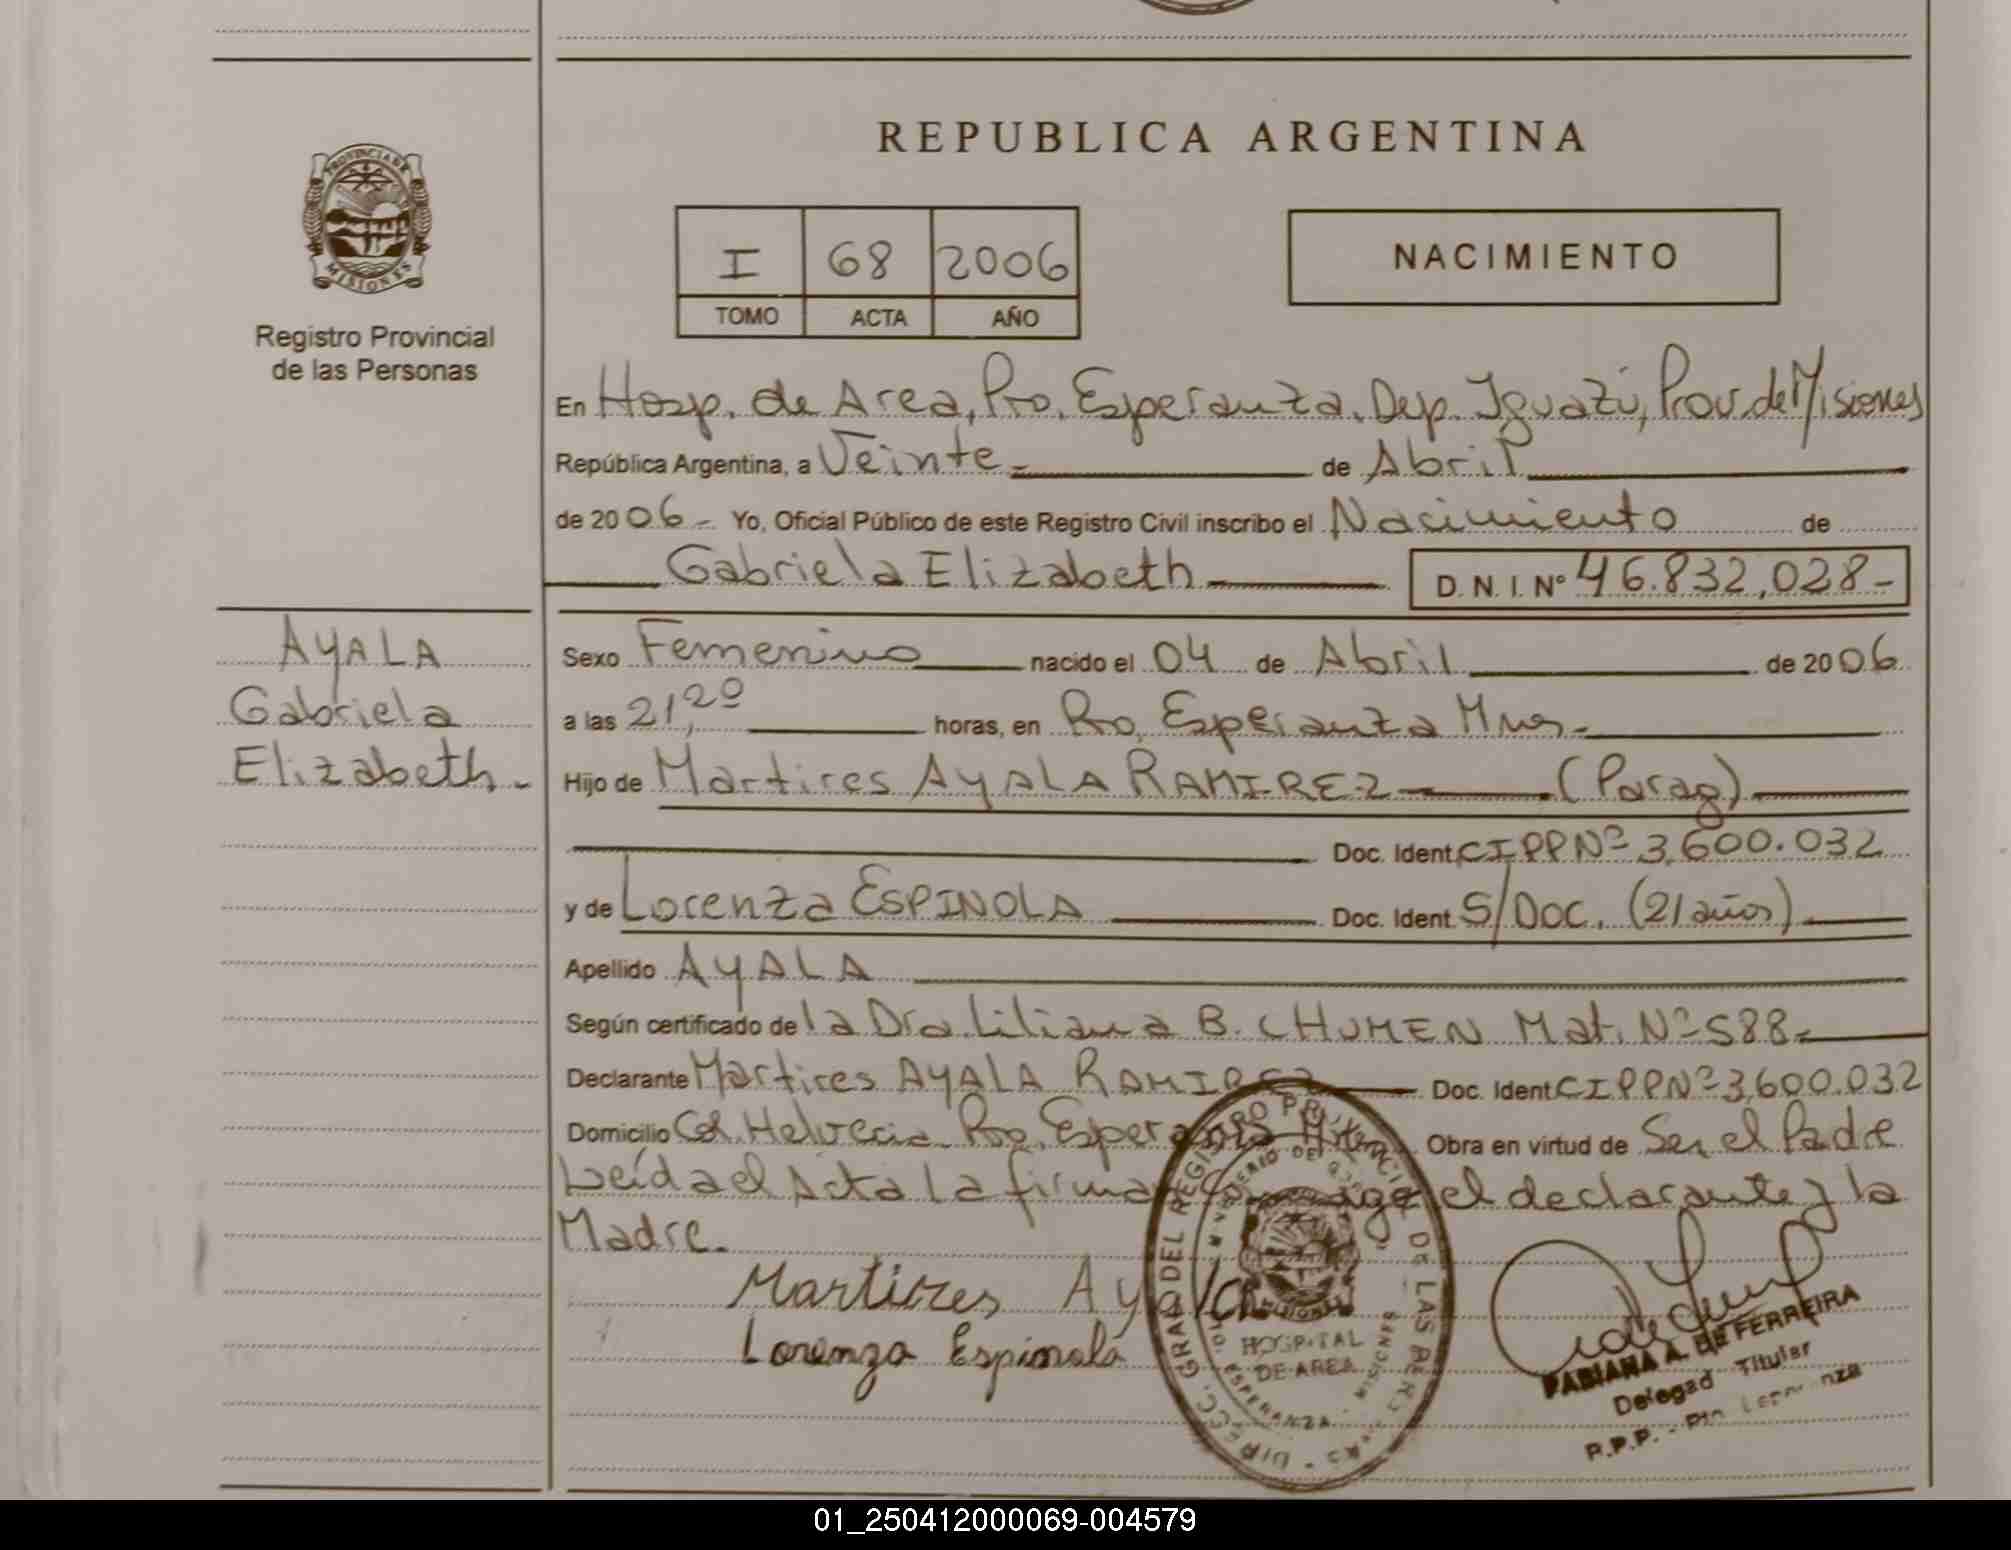 REPUBLICA ARGENTINA
PROVINCIA DE
MISIONES
Registro Provincial
de las Personas
I 68 2006
TOMO ACTA AÑO
NACIMIENTO
En Hosp. de Area, Pto. Esperanza, Dep. Iguazú, Prov. de Misiones
República Argentina, a Veinte.- de Abril
de 2006.- Yo, Oficial Público de este Registro Civil inscribo el Nacimiento de
Gabriela Elizabeth D. N. I. Nº 46.832,028-
AYALA
Gabriela
Elizabeth.-
Sexo Femenino nacido el 04 de Abril de 2006
a las 21,20 horas, en Pto. Esperanza Mnes.-
Hijo de Martires AYALA RAMIREZ (Parag)
Doc. Ident. CIPP Nº 3,600.032
y de Lorenza ESPINOLA Doc. Ident. S/DOC. (21 años)
Apellido AYALA
Según certificado de la Dra. Liliana B. CHUMEN Mat. Nº 588.-
Declarante Martires AYALA RAMIREZ Doc. Ident. CIPP Nº 3,600.032
Domicilio Col. Helvecia Pto. Esperanza Obra en virtud de Ser el Padre
Leída el Acta la firman el declarante y la
Madre.
Martires Ayala
Lorenza Espinola
DIRECC. GRAL DEL REGISTRO PROVINCIAL DE LAS PERSONAS
HOSPITAL
DE AREA
ESPERANZA - MISIONES
FABIANA A. DE FERREIRA
Delegad Titular
R.P.P. - Pto
01_250412000069-004579